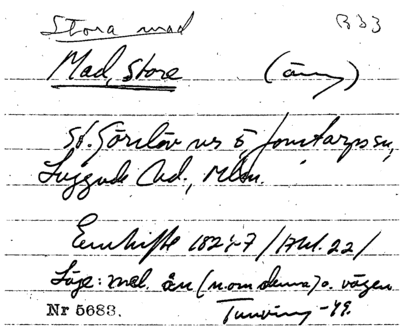 Stora mad B33
Mad, Store (äng)
St. Görslöv nr 5, Jonstorps sn,
Luggude hd., Mlm.
Enskifte 1827 / Akt. 22 /
Läge: mel. ån (norr denna) o. vägen
Nr 5683. Tunving -49.